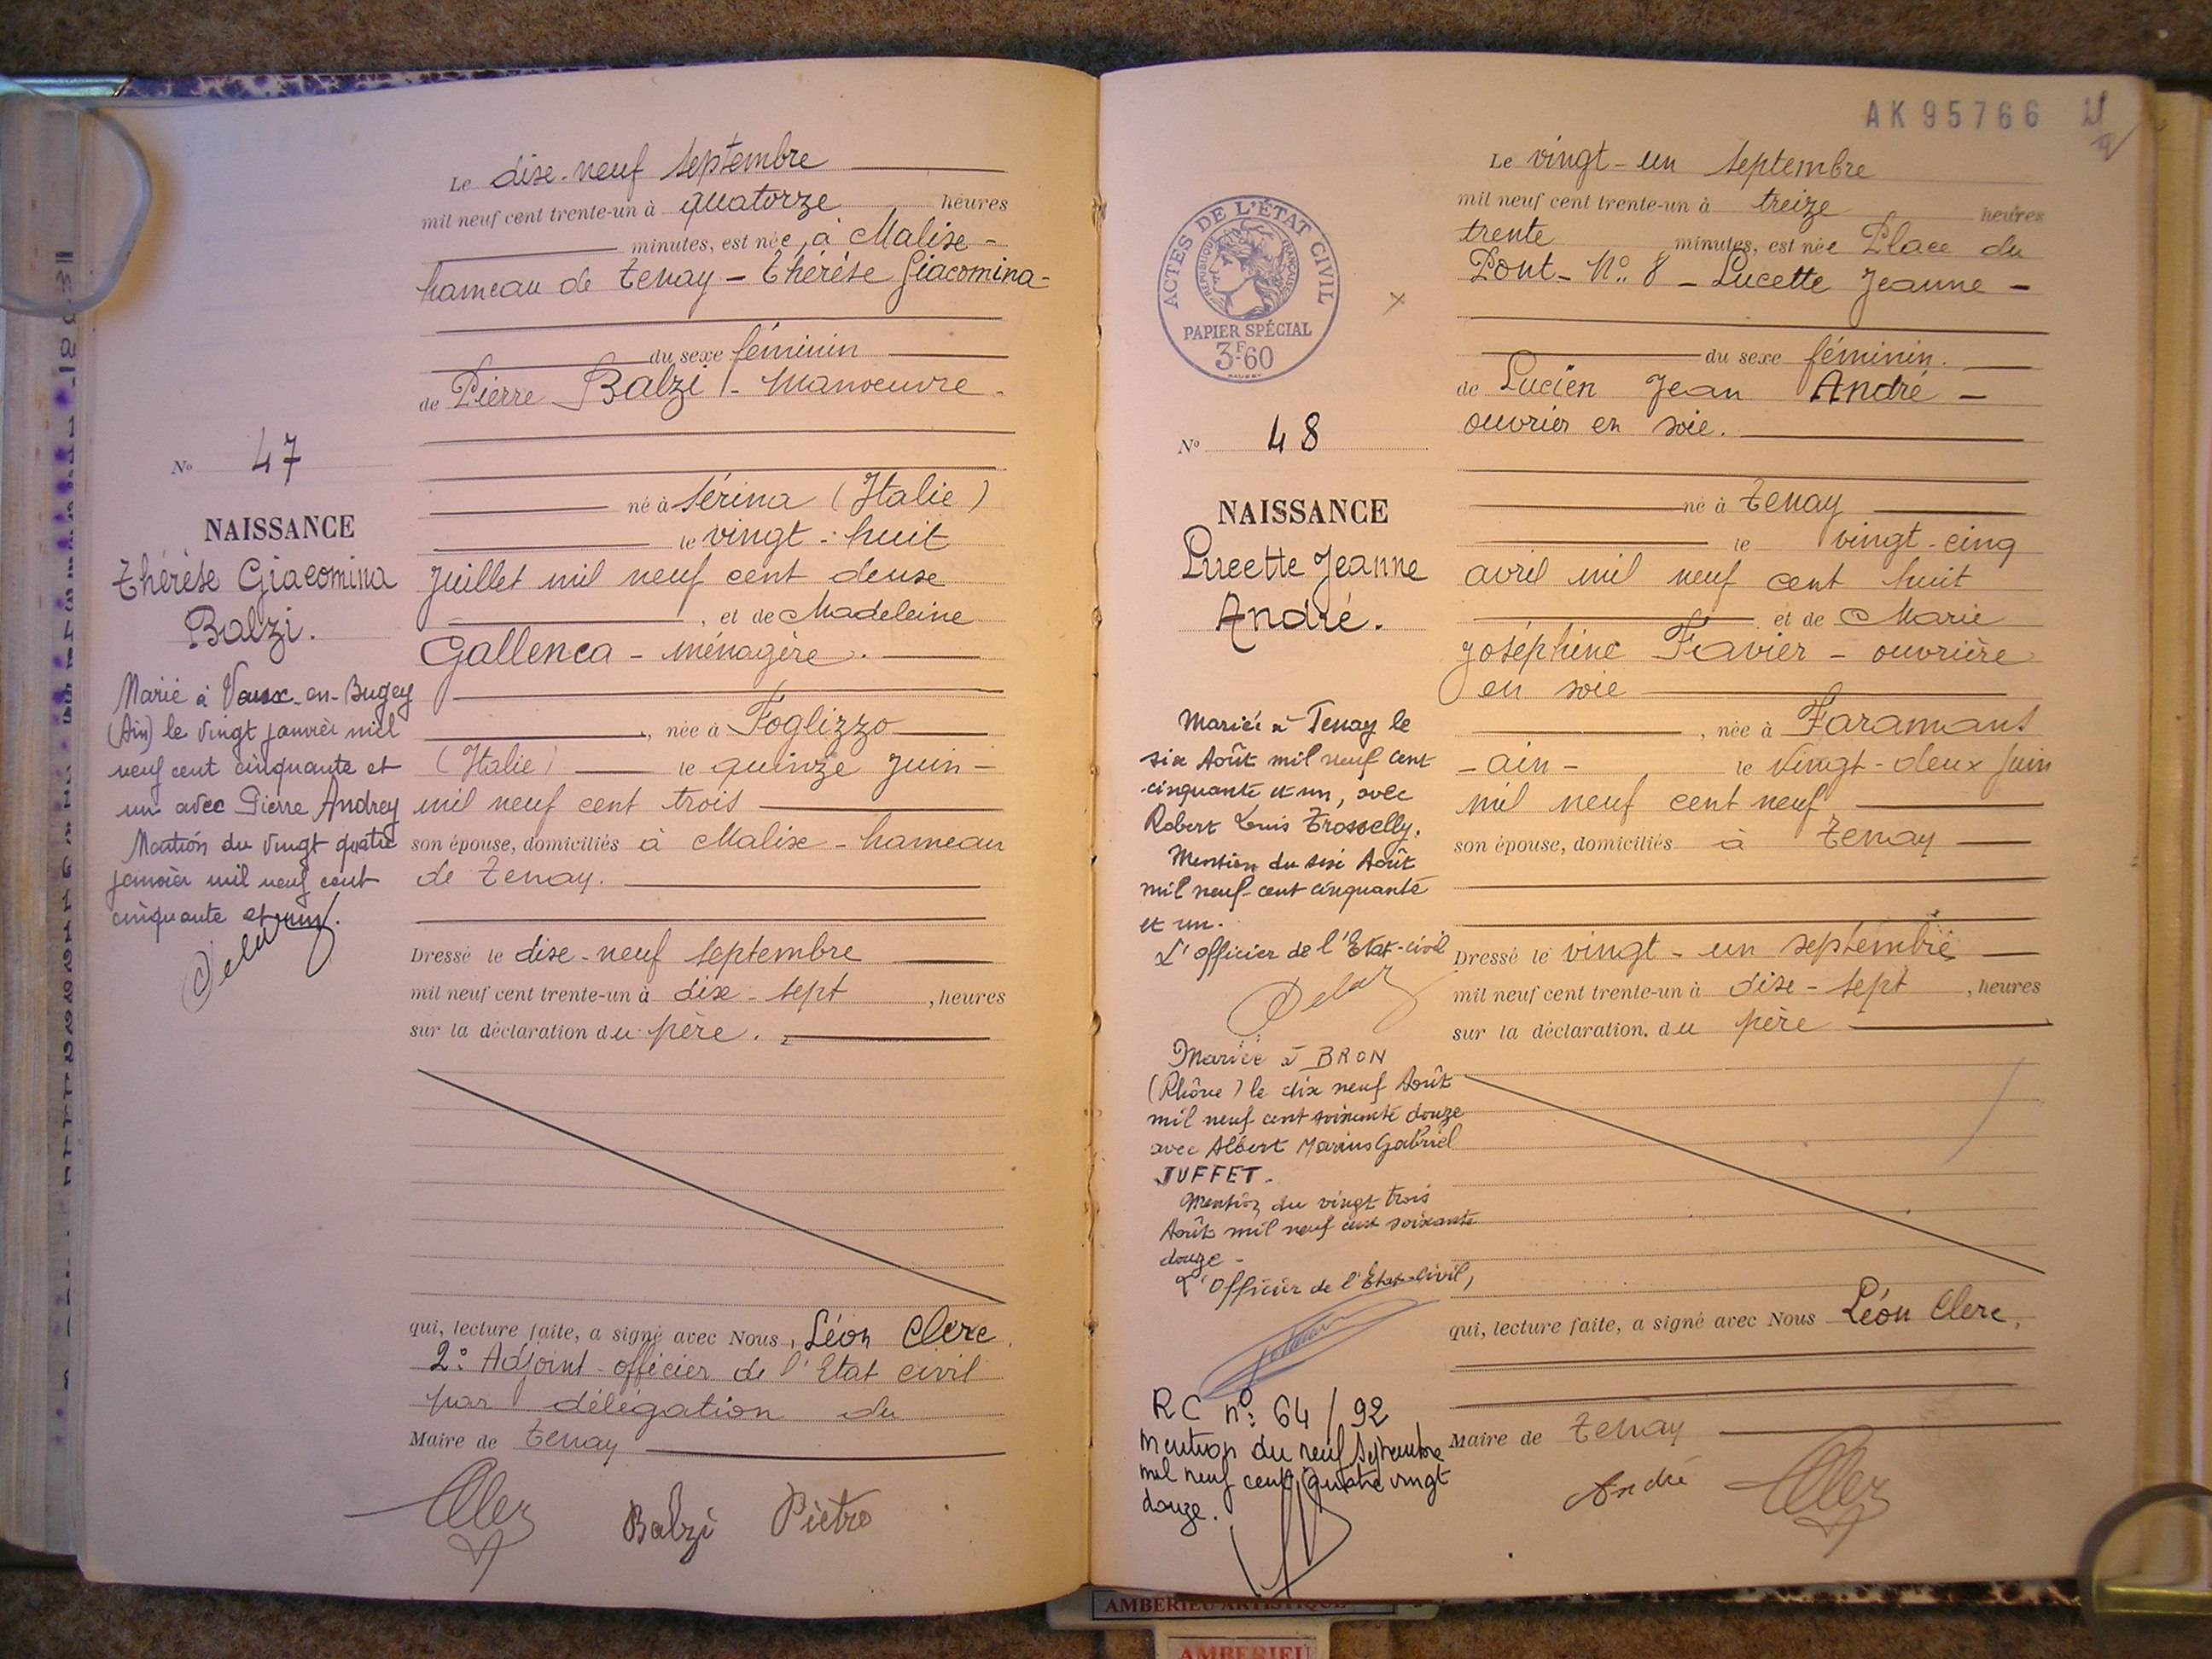 Le dixe-neuf septembre
mil neuf cent trente-un à quatorze heures
minutes, est née, à Malixe -
hameau de Tenay - Thérèse Giacomina -
du sexe féminin
de Pierre Balzi - Manoeuvre -
No 47
né à Sérina (Italie)
NAISSANCE
le vingt-huit
Thérèse Giacomina
Juillet mil neuf cent deuxe
Balzi.
, et de Madeleine
Gallenca - ménagère.
Marié à Vaux-en-Bugey
(Ain) le vingt janvier mil
neuf cent cinquante et
un avec Pierre Andrey
Mention du vingt quatre
janvier mil neuf cent
cinquante et un.
, née à Foglizzo
(Italie) le quinze juin -
mil neuf cent trois
son épouse, domiciliés à Malix - hameau
de Tenay.
Dressé le dixe-neuf septembre
mil neuf cent trente-un à dixe-sept , heures
sur la déclaration du père.
qui, lecture faite, a signé avec Nous, Léon Clerc,
2e Adjoint officier de l'Etat civil
par délégation du
Maire de Tenay
Balzi Pietro
AK95766
ACTES DE L'ÉTAT CIVIL
RÉPUBLIQUE FRANÇAISE
PAPIER SPÉCIAL
3F60
Le vingt-un septembre
mil neuf cent trente-un à treize heures
trente minutes, est née Place du
Pont - No 8 - Lucette Jeanne -
du sexe féminin.
de Lucien Jean André -
ouvrier en soie.
No 48
né à Tenay
NAISSANCE
le vingt-cinq
Lucette Jeanne
avril mil neuf cent huit
André.
et de Marie
Joséphine Favier - ouvrière
en soie
, née à Faramans
- ain - le vingt-deux juin
mil neuf cent neuf
son épouse, domiciliés à Tenay
Mariée à Tenay le
six Août mil neuf cent
cinquante et un, avec
Robert Louis Trosselly.
Mention du six Août
mil neuf-cent cinquante
et un.
L'officier de l'Etat-civil
Dressé le vingt-un septembre
mil neuf cent trente-un à dixe-sept , heures
sur la déclaration du père
Mariée à BRON
(Rhône) le dix neuf Août
mil neuf cent soixante douze
avec Albert Marius Gabriel
JUFFET.
Mention du vingt trois
Août mil neuf cent soixante
douze -
L'Officier de l'Etat-Civil,
qui, lecture faite, a signé avec Nous Léon Clerc,
RC no: 64/92
Mention du neuf Septembre
mil neuf cent quatre vingt
douze.
Maire de Tenay
André
AMBERIEU ARTISTIQUE
AMBERIEU